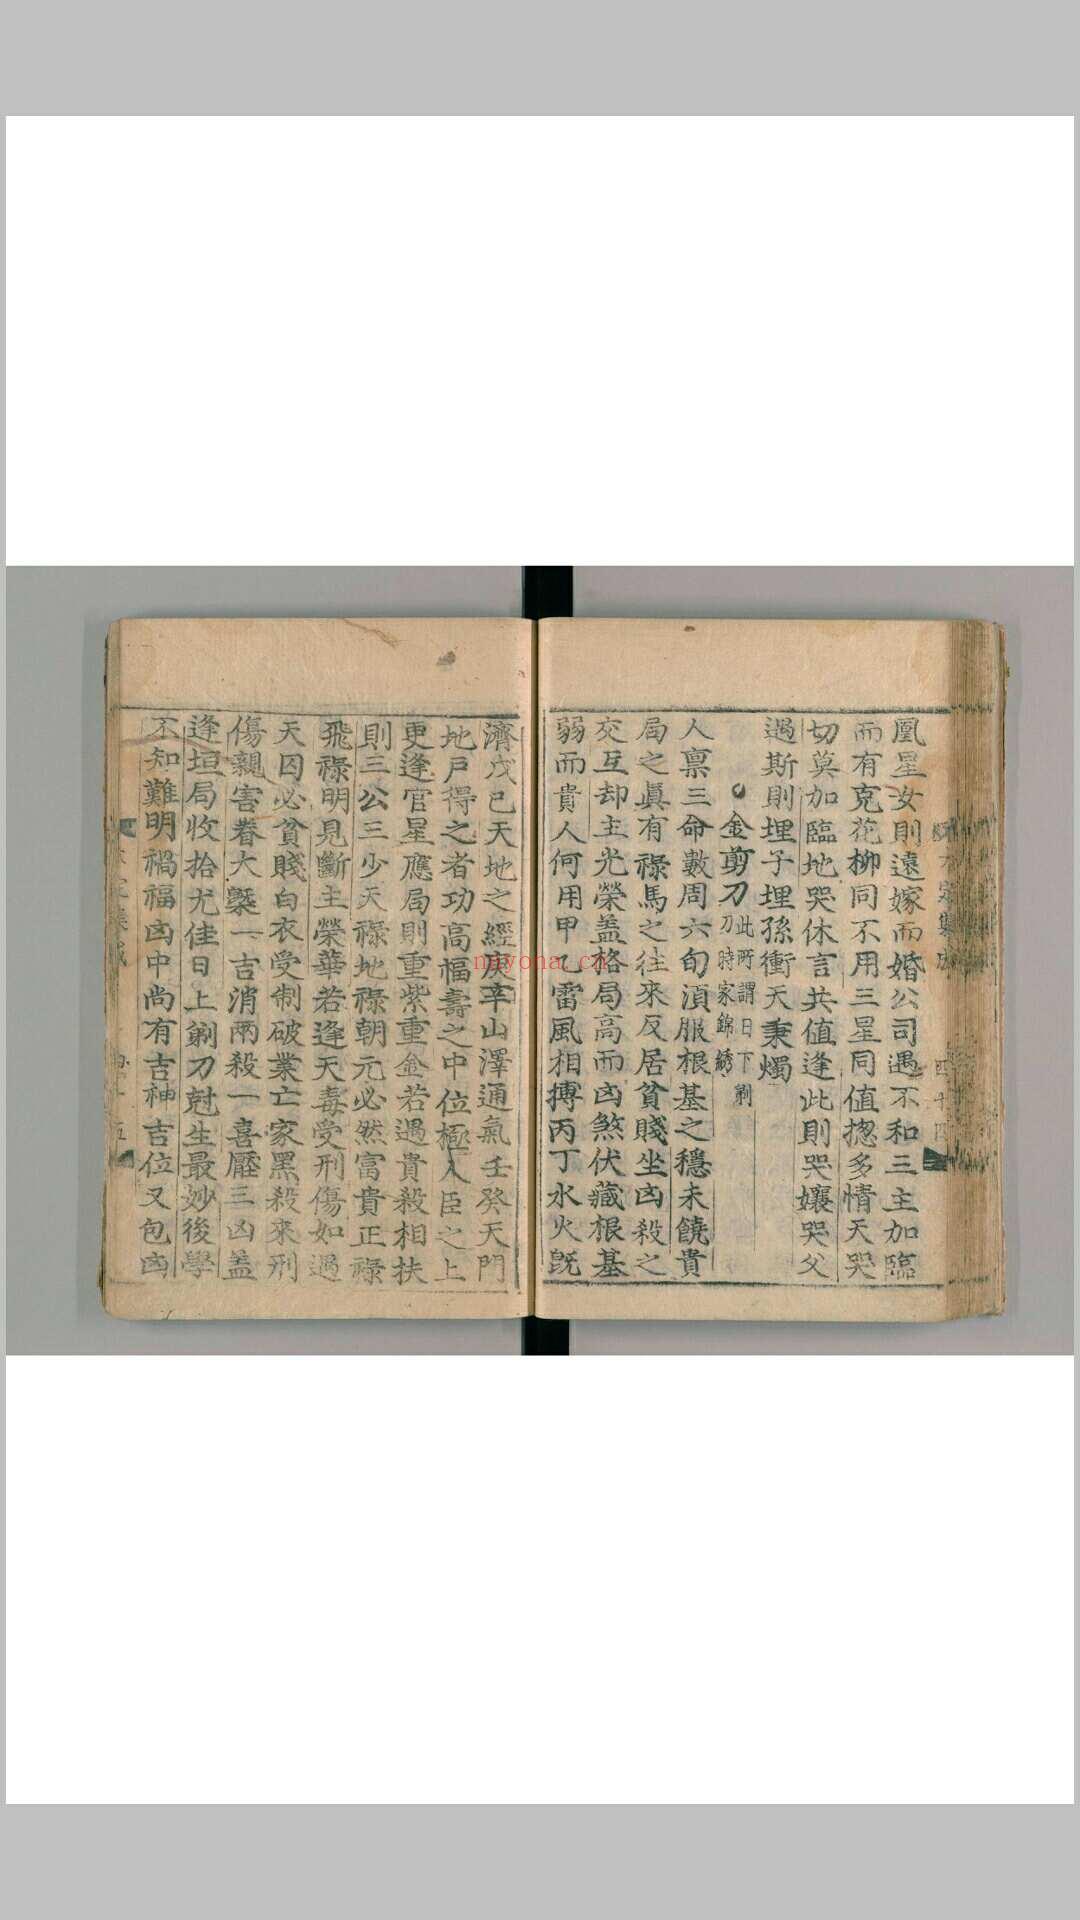 凰星女則遠嫁而婚公司遇不和三主加臨
而有克花柳同不用三星同值揔多情天哭
切莫加臨地哭休言共值逢此則哭孃哭父
過斯則埋子埋孫衝天秉燭
金剪刀此所謂日下剃
刀時家錦綉
人禀三命數周六旬湏服根基之穩未饒貴
局之眞有祿馬之往來反居貧賤坐凶殺之
交互却主光榮盖格局高而凶煞伏藏根基
弱而貴人何用甲乙雷風相搏丙丁水火旣
濟戊己天地之經庚辛山澤通氣壬癸天門
地戶得之者功高福壽之中位極人臣之上
更逢官星應局則重紫重金若遇貴殺相扶
則三公三少天祿地祿朝元必然富貴正祿
飛祿明見斷主榮華若逢天毒受刑傷如過
天囚必貧賤白衣受制破業亡家黑殺來刑
傷親害眷大槩一吉消兩殺一喜壓三凶盖
逢垣局收拾尤佳日上剃刀尅生最妙後學
不知難明禍福凶中尚有吉神吉位又包凶
nayona.cn